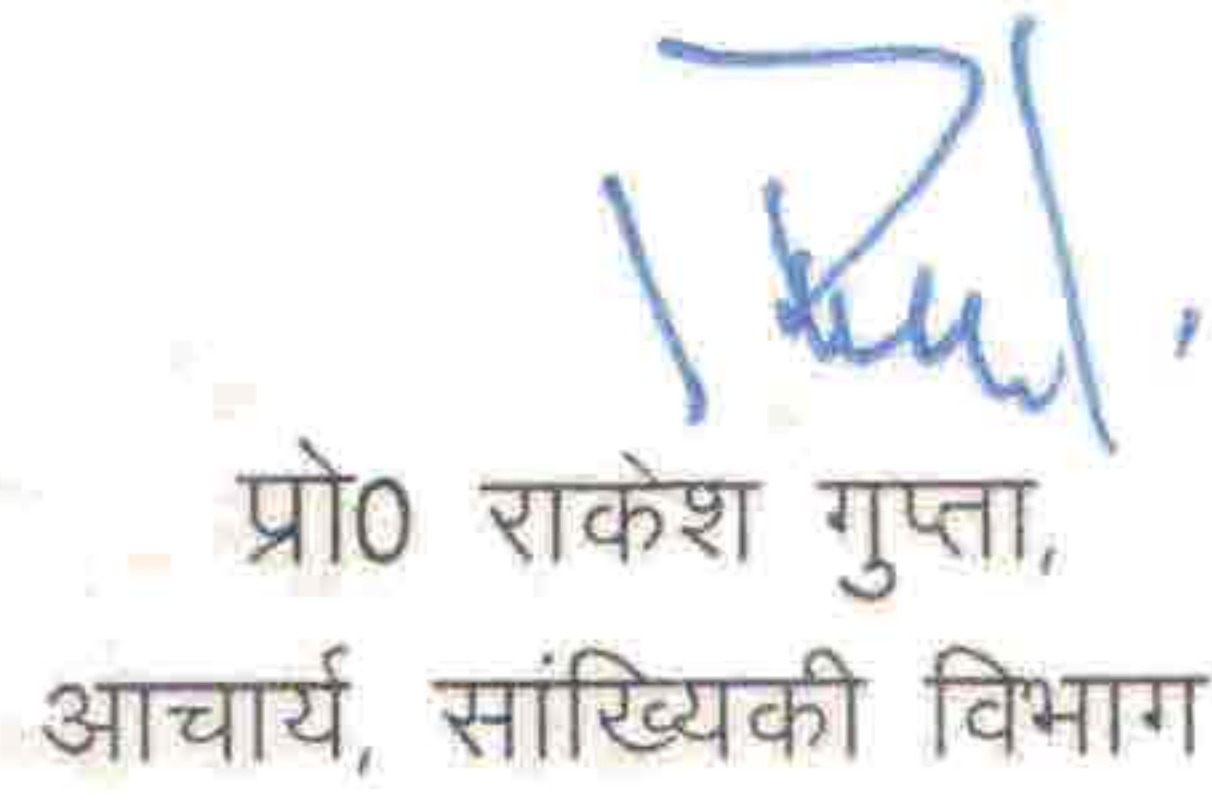 प्रो0 राकेश गुप्ता,
आचार्य, सांख्यिकी विभाग